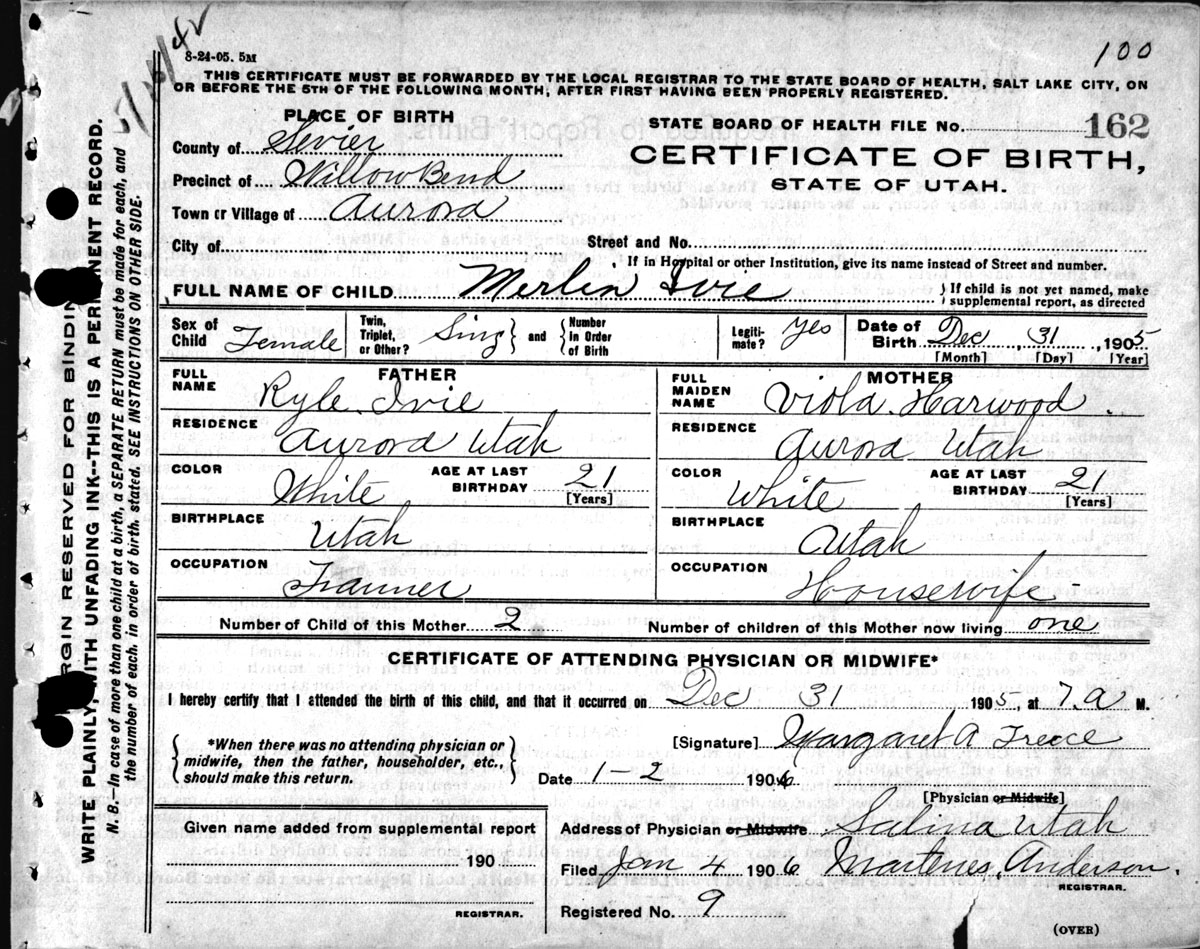 100
8-24-05. 5M
THIS CERTIFICATE MUST BE FORWARDED BY THE LOCAL REGISTRAR TO THE STATE BOARD OF HEALTH, SALT LAKE CITY, ON
OR BEFORE THE 5TH OF THE FOLLOWING MONTH, AFTER FIRST HAVING BEEN PROPERLY REGISTERED.
PLACE OF BIRTH
STATE BOARD OF HEALTH FILE No. 162
County of Sevier
CERTIFICATE OF BIRTH,
Precinct of Willow Bend
STATE OF UTAH.
Town or Village of Aurora
City of Street and No.
If in Hospital or other Institution, give its name instead of Street and number.
FULL NAME OF CHILD Merlin Ivie { If child is not yet named, make
supplemental report, as directed
Sex of Child Female Twin, Triplet, or Other? Sing } and { Number in Order of Birth Legiti-mate? Yes Date of Birth Dec, 31, 1905
[Month] [Day] [Year]
FATHER MOTHER
FULL NAME Kyle Ivie FULL MAIDEN NAME Viola Harwood
RESIDENCE Aurora Utah RESIDENCE Aurora Utah
COLOR White AGE AT LAST BIRTHDAY 21 [Years] COLOR White AGE AT LAST BIRTHDAY 21 [Years]
BIRTHPLACE Utah BIRTHPLACE Utah
OCCUPATION Farmer OCCUPATION Housewife
Number of Child of this Mother 2 Number of children of this Mother now living one
CERTIFICATE OF ATTENDING PHYSICIAN OR MIDWIFE*
I hereby certify that I attended the birth of this child, and that it occurred on Dec 31 1905, at 7.a M.
{ *When there was no attending physician or
midwife, then the father, householder, etc.,
should make this return. }
[Signature] Margaret A Freece
Date 1-2 1906
[Physician or Midwife]
Given name added from supplemental report
190
REGISTRAR.
Address of Physician or Midwife Salina Utah
Filed Jan 4 1906 Martenus Anderson.
REGISTRAR.
Registered No. 9
(OVER)
MARGIN RESERVED FOR BINDING
WRITE PLAINLY, WITH UNFADING INK--THIS IS A PERMANENT RECORD.
N. B.—In case of more than one child at a birth, a SEPARATE RETURN must be made for each, and
the number of each, in order of birth, stated. SEE INSTRUCTIONS ON OTHER SIDE.